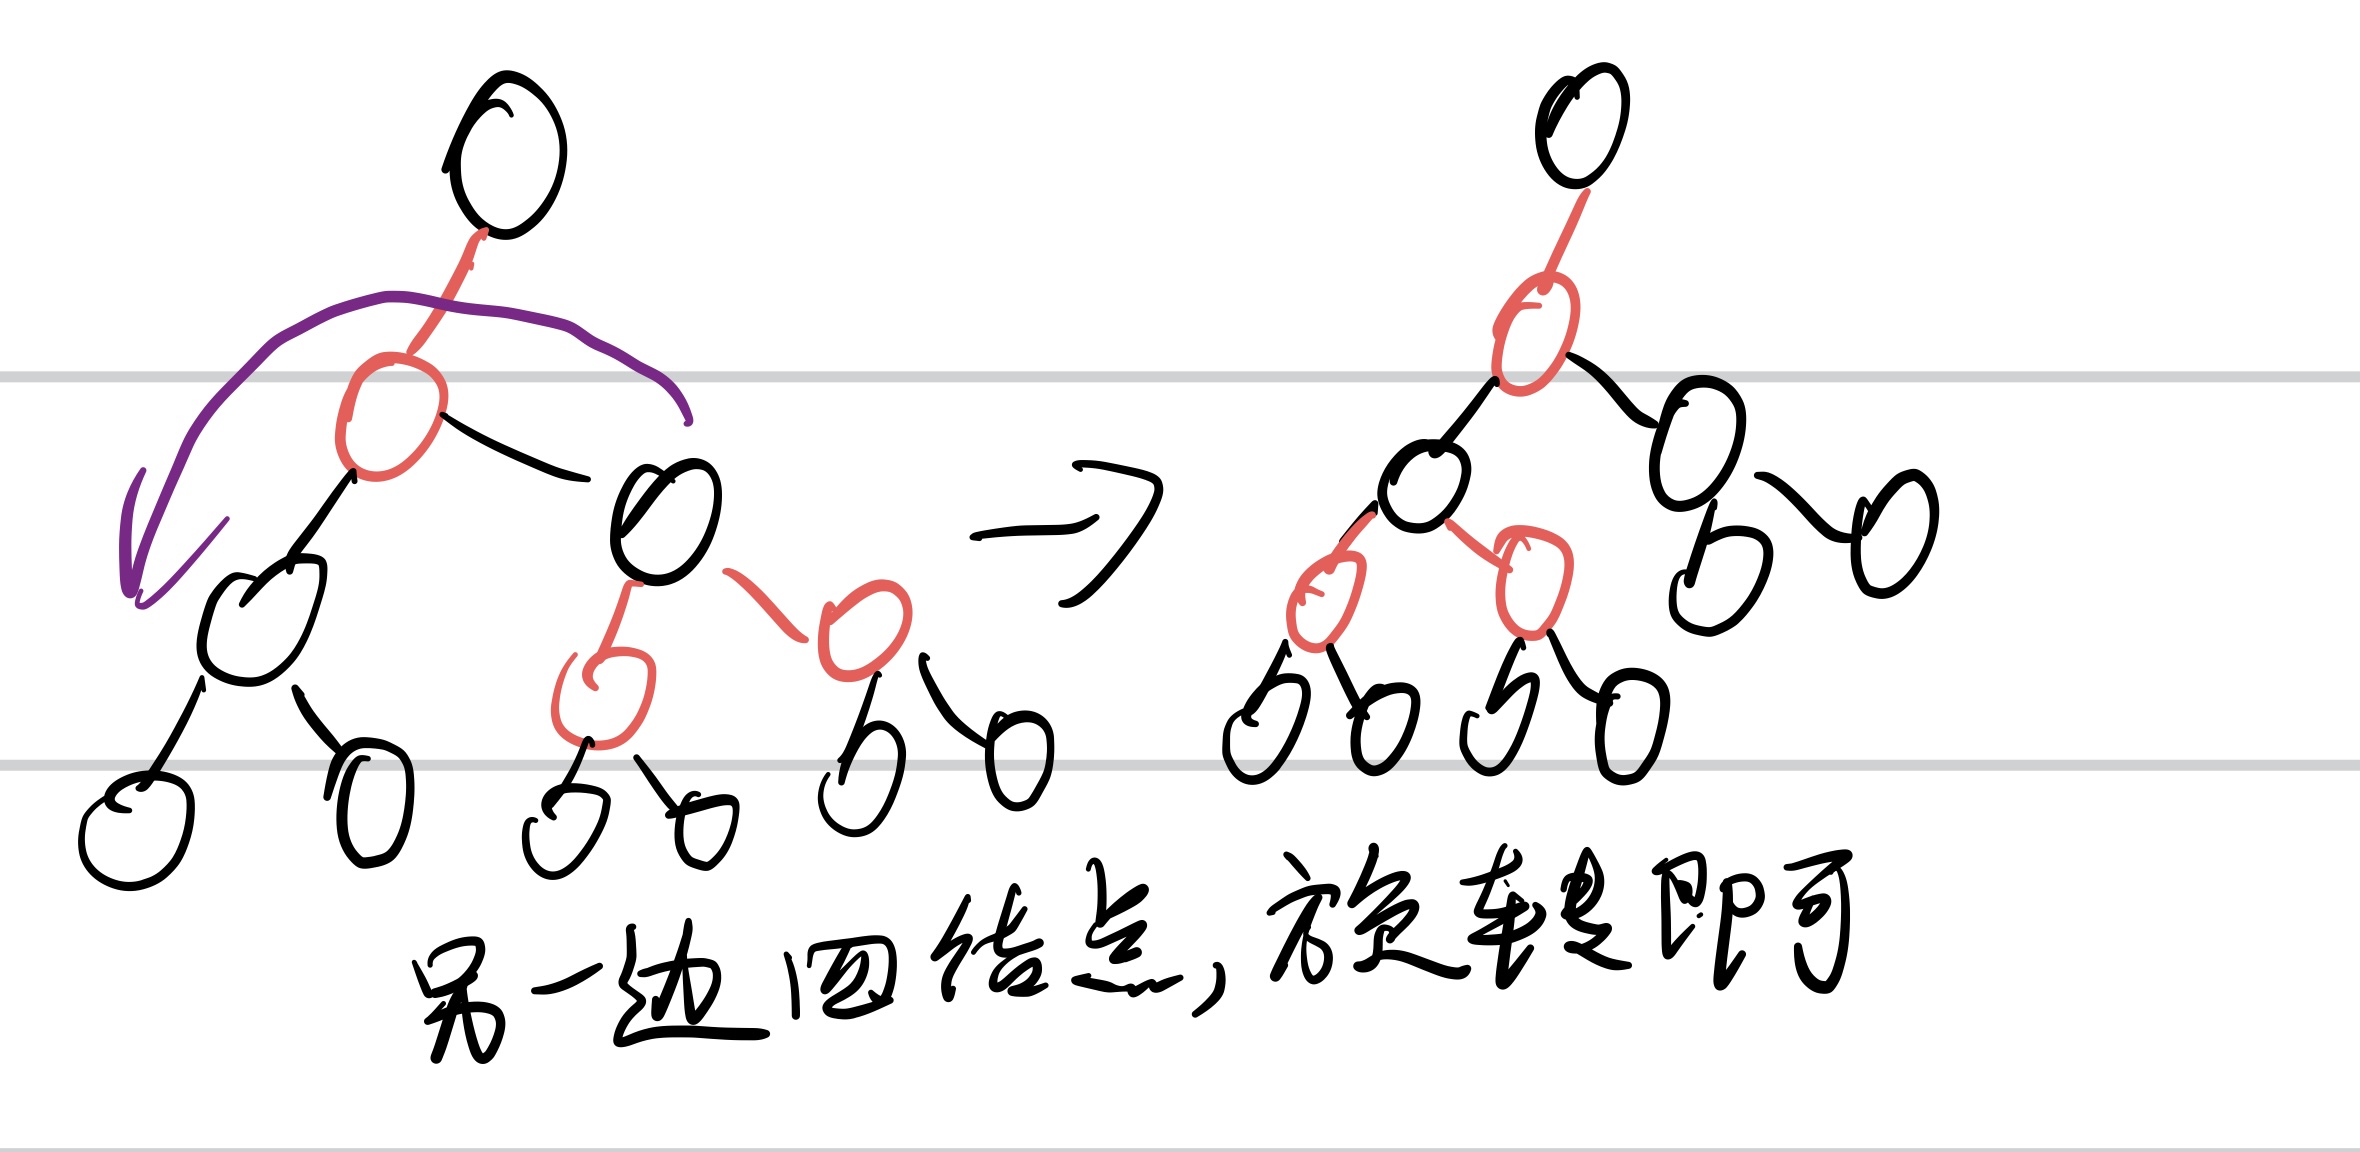 另一边四结点,旋转即可